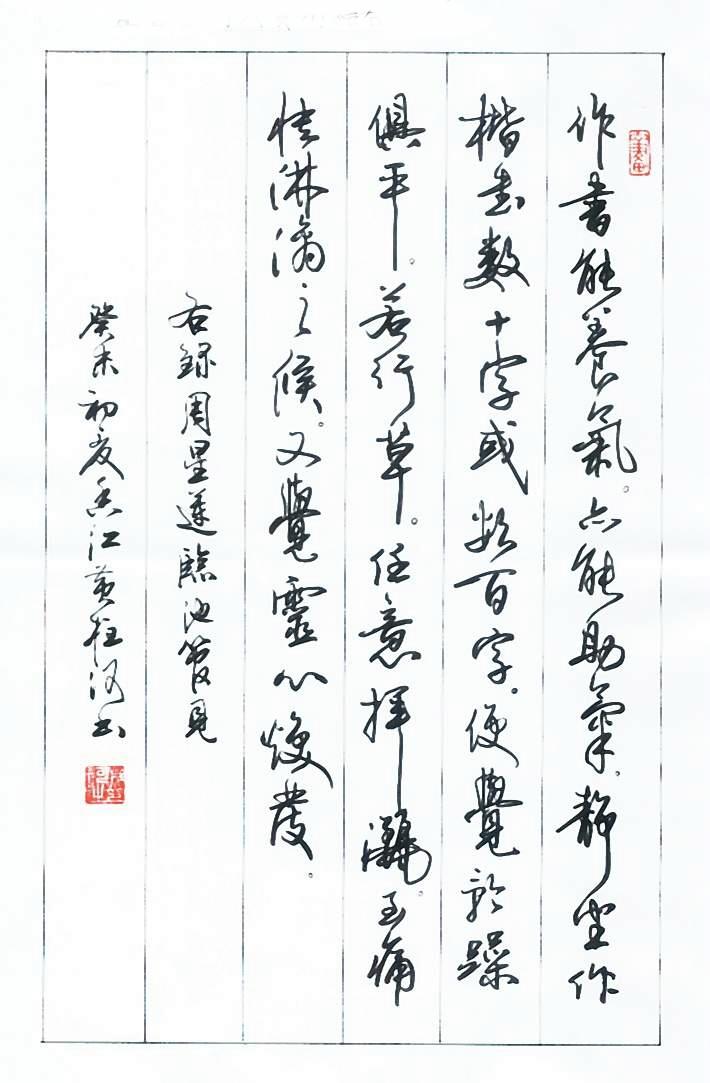 作書能養氣。亦能助氣。靜坐作
楷书数十字或数百字。便覺矜躁
俱平。若行草。任意揮灑。至痛
快淋漓之候。又覺靈心焕發。
右録周星蓮臨池管見
癸未初夏香江黄柱河书